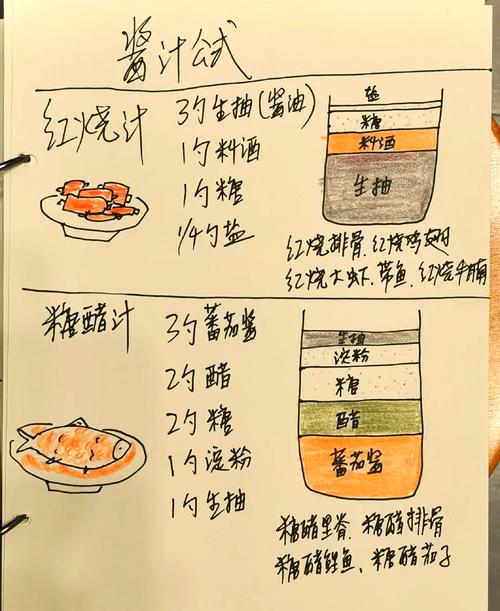 酱汁公式
红烧汁
3勺生抽(酱油)
1勺料酒
1勺糖
1/4勺盐
盐
糖
料酒
生抽
红烧排骨、红烧鸡翅
红烧大虾、带鱼、红烧牛腩
糖醋汁
3勺蕃茄酱
2勺醋
2勺糖
1勺淀粉
1勺生抽
生抽
淀粉
糖
醋
蕃茄酱
糖醋里脊、糖醋排骨
糖醋鲤鱼、糖醋茄子